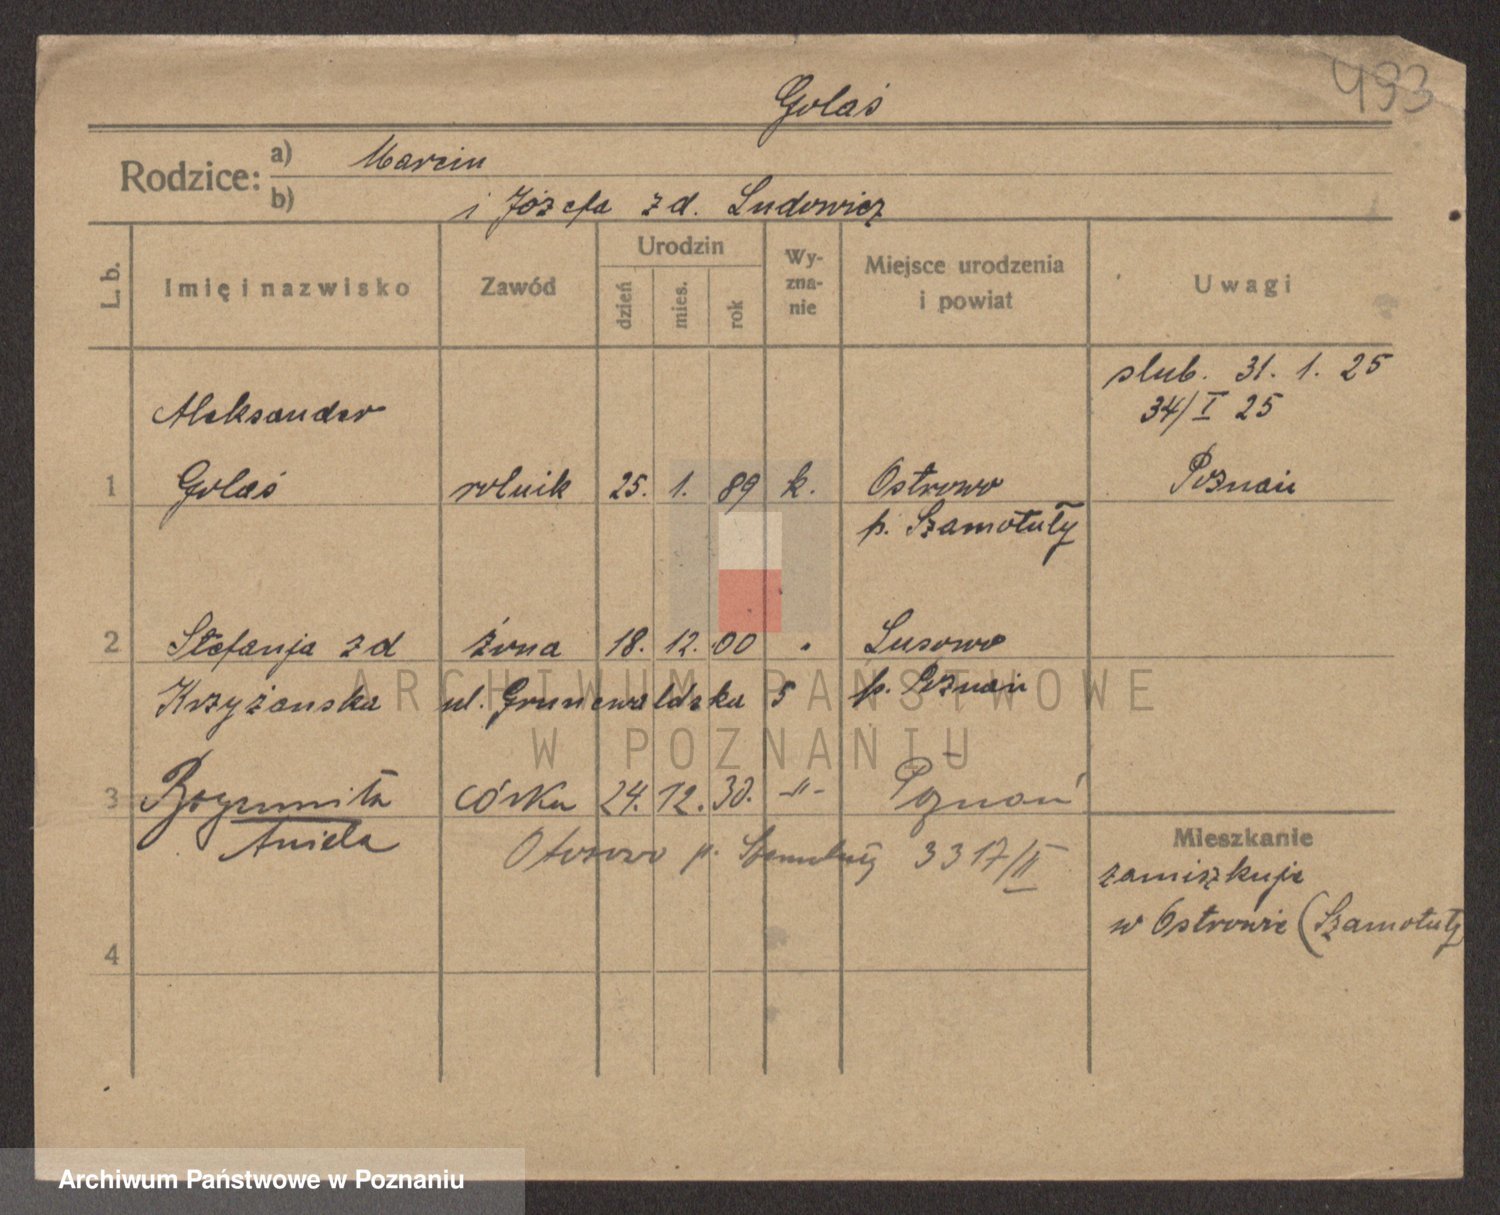 493
Golaś
Rodzice:
a) Marcin
b) i Józefa zd. Ludowicz
L. b.
Imię i nazwisko
Zawód
Urodzin
dzień
mies.
rok
Wy-
zna-
nie
Miejsce urodzenia
i powiat
Uwagi
slub. 31. 1. 25
34/I 25
Poznań
Aleksander
1 Golaś rolnik 25. 1. 89 k. Ostrowo
p. Szamotuły
2 Stefanja zd żona 18. 12. 00 " Lusowo
Krzyżanska ul. Grunewaldzka 5 p. Poznań
3 Bogumiła córka 24. 12. 30. -"- Poznań
Aniela
Otorowo p. Szamotuły 3317/II
Mieszkanie
zamiszkuje
w Ostrowie (Szamotuły
4
ARCHIWUM PAŃSTWOWE
W POZNANIU
Archiwum Państwowe w Poznaniu